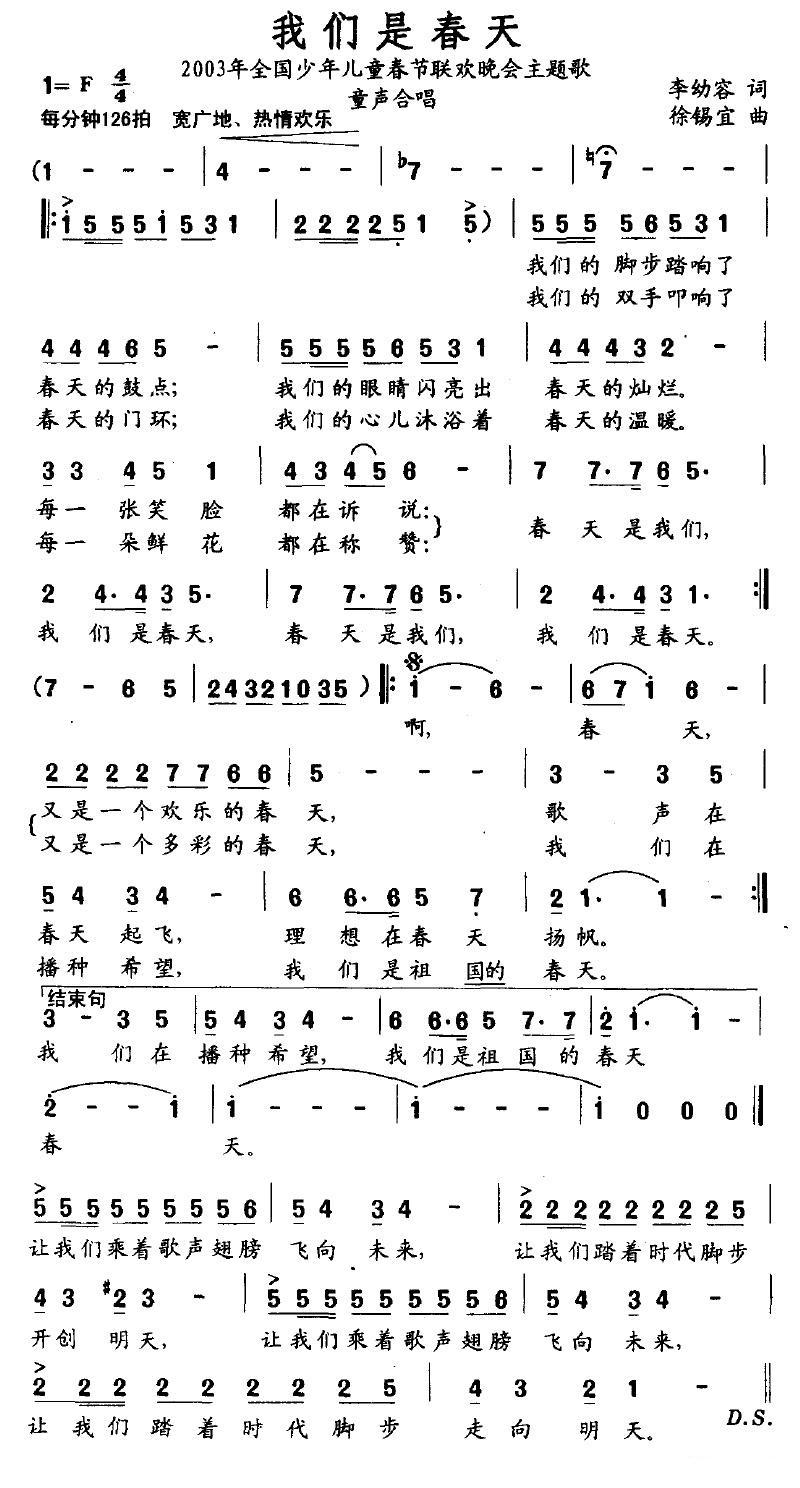 我们是春天
2003年全国少年儿童春节联欢晚会主题歌
1= F 4/4
童声合唱
李幼容 词
每分钟126拍 宽广地、热情欢乐
徐锡宜 曲
(1 - - - | 4 - - - | ♭7 - - - | ♮7 - - - |
‖: i 5 5 5 i 5 3 1 | 2 2 2 2 2 5 1 5 ) | 5 5 5 5 6 5 3 1 |
我们的 脚步踏响了
我们的 双手叩响了
4 4 4 6 5 - | 5 5 5 5 6 5 3 1 | 4 4 4 3 2 - |
春天的鼓点; 我们的眼睛闪亮出 春天的灿烂。
春天的门环; 我们的心儿沐浴着 春天的温暖。
3 3 4 5 1 | 4 3 4 5 6 - | 7 7· 7 6 5· |
每一 张笑 脸 都在诉 说:
每一 朵鲜 花 都在称 赞: } 春 天 是我们,
2 4· 4 3 5· | 7 7· 7 6 5· | 2 4· 4 3 1· :‖
我 们 是春天, 春 天 是我们, 我 们 是春天。
(7 - 6 5 | 2 4 3 2 1 0 3 5 ) ‖: i - 6 - | 6 7 i 6 - |
啊, 春 天,
2 2 2 2 7 7 6 6 | 5 - - - | 3 - 3 5 |
{ 又是一个欢乐的春 天, 歌 声在
又是一个多彩的春 天, 我 们在
5 4 3 4 - | 6 6· 6 5 7 | 2 1· 1 - :‖
春天 起飞, 理 想在春 天 扬帆。
播种 希望, 我 们是祖 国的 春天。
结束句
3 - 3 5 | 5 4 3 4 - | 6 6· 6 5 7· 7 | 2 i· i - |
我 们在 播种希望, 我们是祖 国 的春天
2 - - i | i - - - | i - - - | i 0 0 0 |
春 天。
5 5 5 5 5 5 5 5 6 | 5 4 3 4 - | 2 2 2 2 2 2 2 2 5 |
让我们乘着歌声翅膀 飞向 未来, 让我们踏着时代脚步
4 3 #2 3 - | 5 5 5 5 5 5 5 5 6 | 5 4 3 4 - |
开创 明天, 让我们乘着歌声翅膀 飞向 未来,
2 2 2 2 2 2 2 2 5 | 4 3 2 1 - ‖
让 我们 踏 着 时 代 脚 步 走 向 明 天。 D.S.